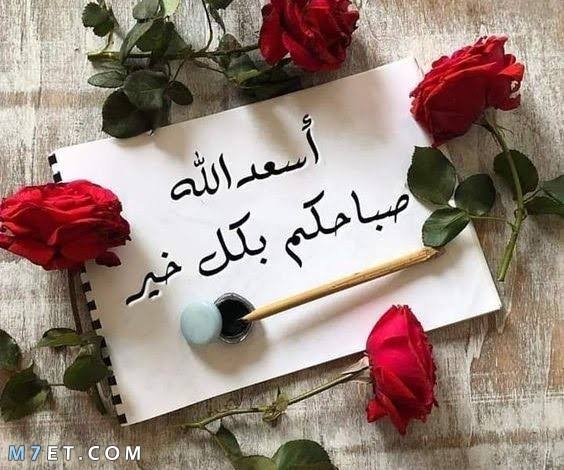 أسعد الله
صباحكم بكل خير
M7ET.COM